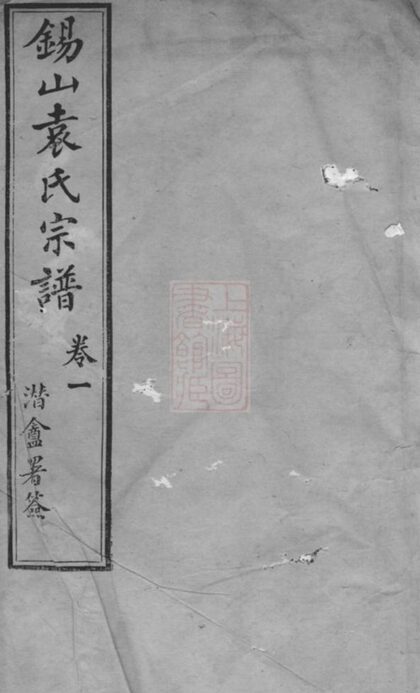 錫山袁氏宗譜
卷一
潜盦署簽
上海圖書館藏